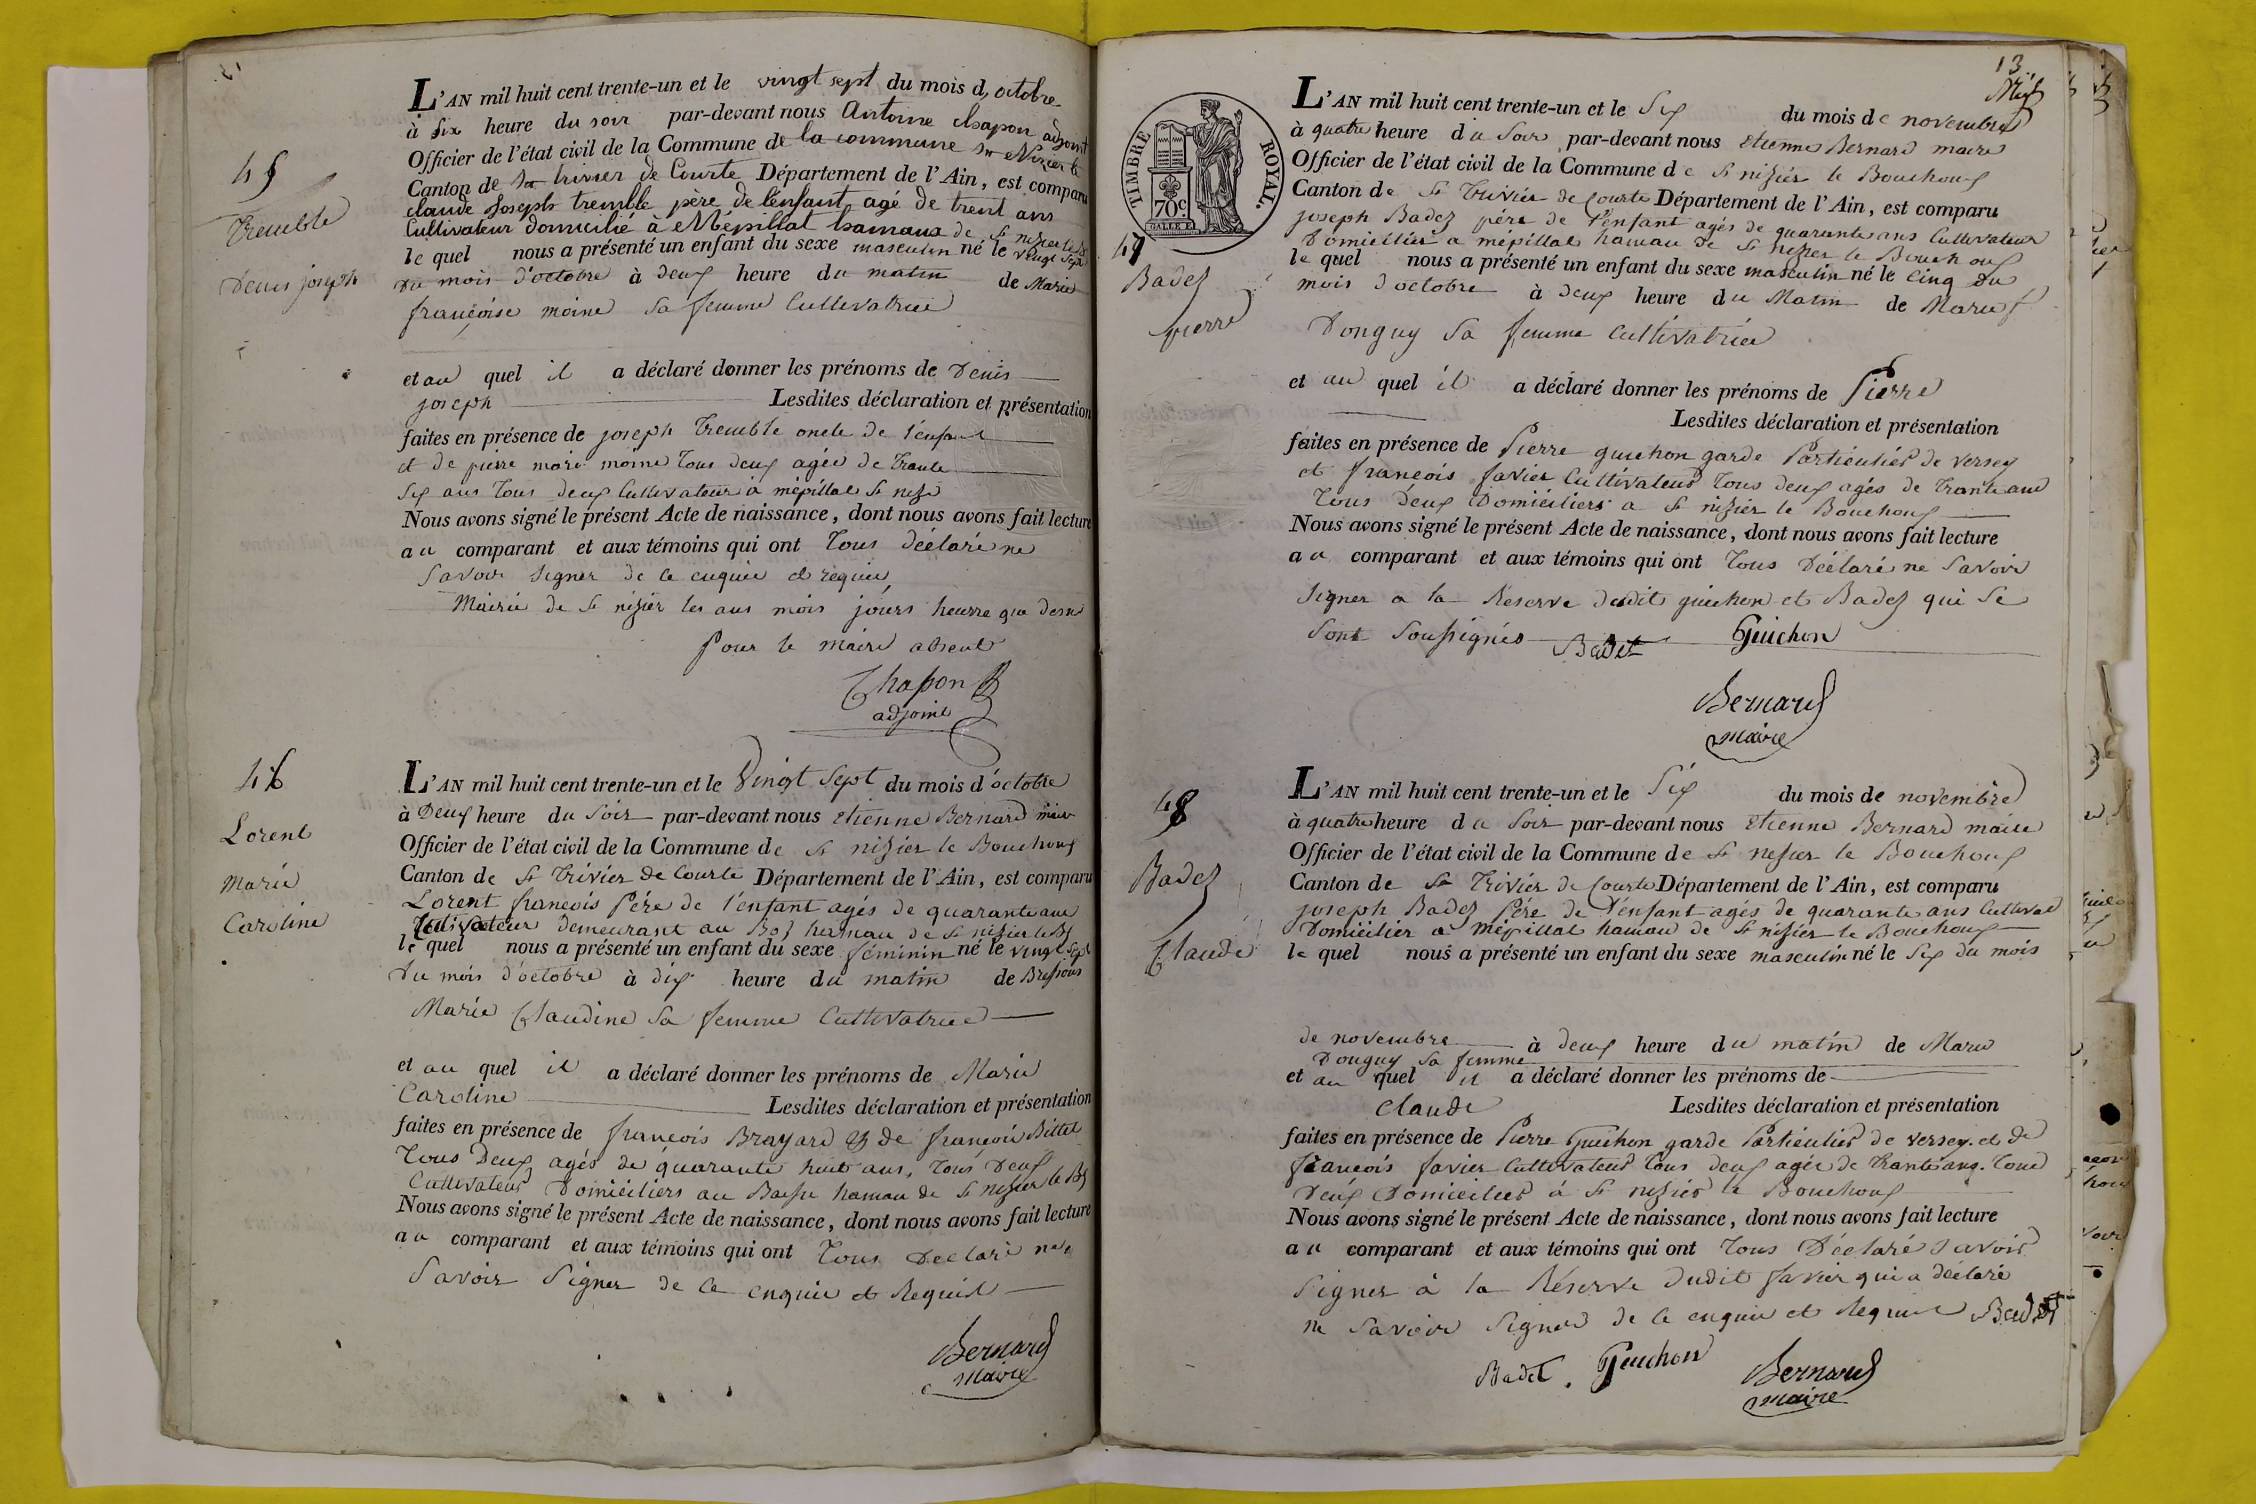 45
Tremble
Denis joseph
L'AN mil huit cent trente-un et le vingt sept du mois d, octobre
à six heure du soir par-devant nous Antoine chapon adjoint
Officier de l'état civil de la Commune de la commune st Nizier le
Canton de st trivier de Courte Département de l'Ain, est comparu
claude Joseph tremble père de lénfant, agé de trent ans
Cultivateur domicilié à Mépillat hamaux de st nizier le B
le quel nous a présenté un enfant du sexe masculin né le vingt sept
du mois d'octobre à deux heure du matin de Marie
françóise moine sa femme Cultivatrice
et au quel il a déclaré donner les prénoms de Denis
joseph Lesdites déclaration et présentation
faites en présence de joseph Tremble oncle de l'enfant
et de pierre marie moine Tous deux agée de Trante
six ans Tous deux Cultivateur à mépillat st nizi
Nous avons signé le présent Acte de naissance, dont nous avons fait lecture
au comparant et aux témoins qui ont Tous déclaré ne
savoir signer de ce enquie et requie
Mairie de st nizier les ans mois jours heurre que dessu
pour le maire absent
Chapon
adjoint
46
Lorent
Marie
Caroline
L'AN mil huit cent trente-un et le Vingt Sept du mois d'octobre
à Deux heure du Soir par-devant nous etienne Bernard maire
Officier de l'état civil de la Commune de st nizier le Bouchoux
Canton de st Trivier de Courte Département de l'Ain, est comparu
Lorent francois Pére de l'enfant agés de quarante ans
Cultivateur demeurant au Boz hamau de st nizier le B
le quel nous a présenté un enfant du sexe féminin né le vingt sept
Du mois d'octobre à dix heure du matin de Brissons
Marie Claudine sa femme Cultivatrice
et au quel il a déclaré donner les prénoms de Marie
Caroline Lesdites déclaration et présentation
faites en présence de francois Brayard et de francois Bittel
Tous Deux agés de quarante huit ans, Tous Deux
Cultivateur Domiciliers au Basse hamau de st nizier le B
Nous avons signé le présent Acte de naissance, dont nous avons fait lecture
au comparant et aux témoins qui ont Tous Declaré ne
Savoir Signer de ce enquie et Requist
Bernard
maire
13
TIMBRE ROYAL.
70c
47
Badez
pierre
L'AN mil huit cent trente-un et le Six du mois de novembre
à quatre heure du Soir par-devant nous etienne Bernard maire
Officier de l'état civil de la Commune de st nizier le Bouchoux
Canton de st Trivier de Courte Département de l'Ain, est comparu
joseph Badez pére de l'enfant agés de quarante ans Cultivateur
Domicilier a mépillat hamau de st nizier le Bouchoux
le quel nous a présenté un enfant du sexe masculin né le cinq du
mois d octobre à deux heure du Matin de Marie
Donguy sa femme cultivatrice
et au quel il a déclaré donner les prénoms de Pierre
Lesdites déclaration et présentation
faites en présence de Pierre guichon garde Particulier de versey
et francois favier Cultivateur Tous deux agés de Trante ans
Tous Deux Domiciliers a st nizier le Bouchoux
Nous avons signé le présent Acte de naissance, dont nous avons fait lecture
au comparant et aux témoins qui ont Tous Déclaré ne Savoir
Signer a la Reserve dudit guichon et Badez qui se
sont soussignés Badet Guichon
Bernard
maire
48
Badez
Claude
L'AN mil huit cent trente-un et le Six du mois de novembre
à quatre heure du Soir par-devant nous etienne Bernard maire
Officier de l'état civil de la Commune de st nizier le Bouchoux
Canton de st Trivier de Courte Département de l'Ain, est comparu
joseph Badez Pére de l'enfant agés de quarante ans Cultivat
Domicilier a mépillat hamau de st nizier le Bouchoux
le quel nous a présenté un enfant du sexe masculin né le Six du mois
de novembre à deux heure du matin de Marie
Donguy sa femme
et au quel il a déclaré donner les prénoms de
Claude Lesdites déclaration et présentation
faites en présence de Pierre Guichon garde Particulier de versey et de
francois favier Cultivateur Tous deux agée de Trante ans. Tous
Deux Domicilier à st nizier le Bouchoux
Nous avons signé le présent Acte de naissance, dont nous avons fait lecture
au comparant et aux témoins qui ont Tous Déclaré Savoir
Signer à la Réserve Dudit favier qui a déclaré
ne savoir Signer de ce enquie et Requise Badet
Badet. Guichon Bernard
maire